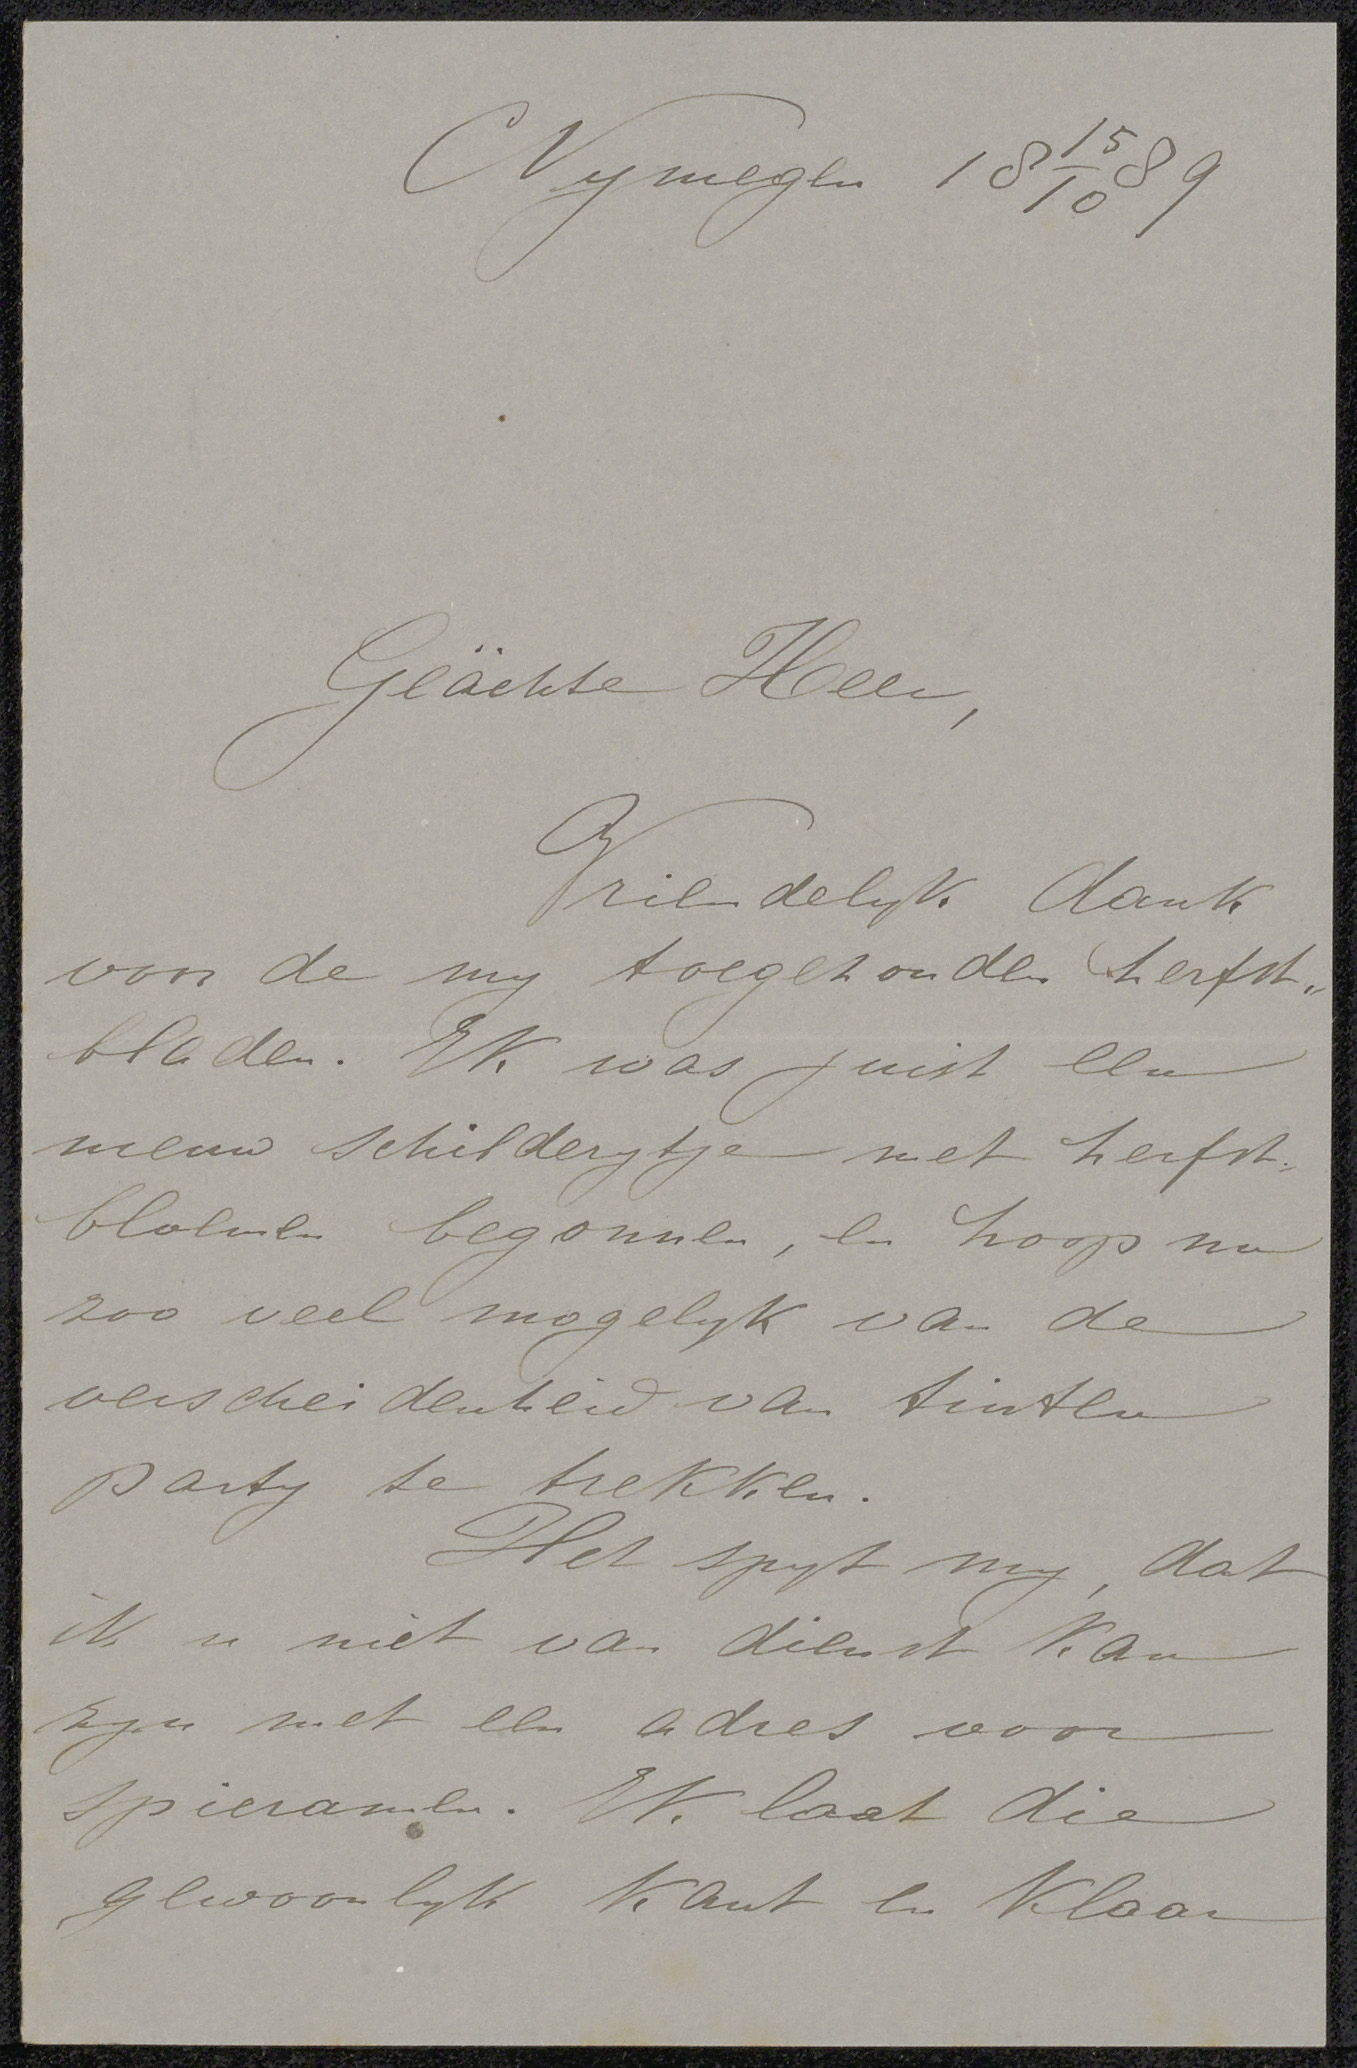 Nymegen 18 15/10 89
Geächte Heer,
Vriendelyk dank
voor de my toegezonden herfst„
bladen. Ik was juist een
nieuw schilderytje met herfst„
bloemen begonnen, en hoop nu
zoo veel mogelyk van de
verscheidenheid van tinten
party te trekken.
Het spyt my, dat
ik u niet van dienst kan
zyn met een adres voor
spieramen. Ik laat die
gewoonlyk kant en klaar